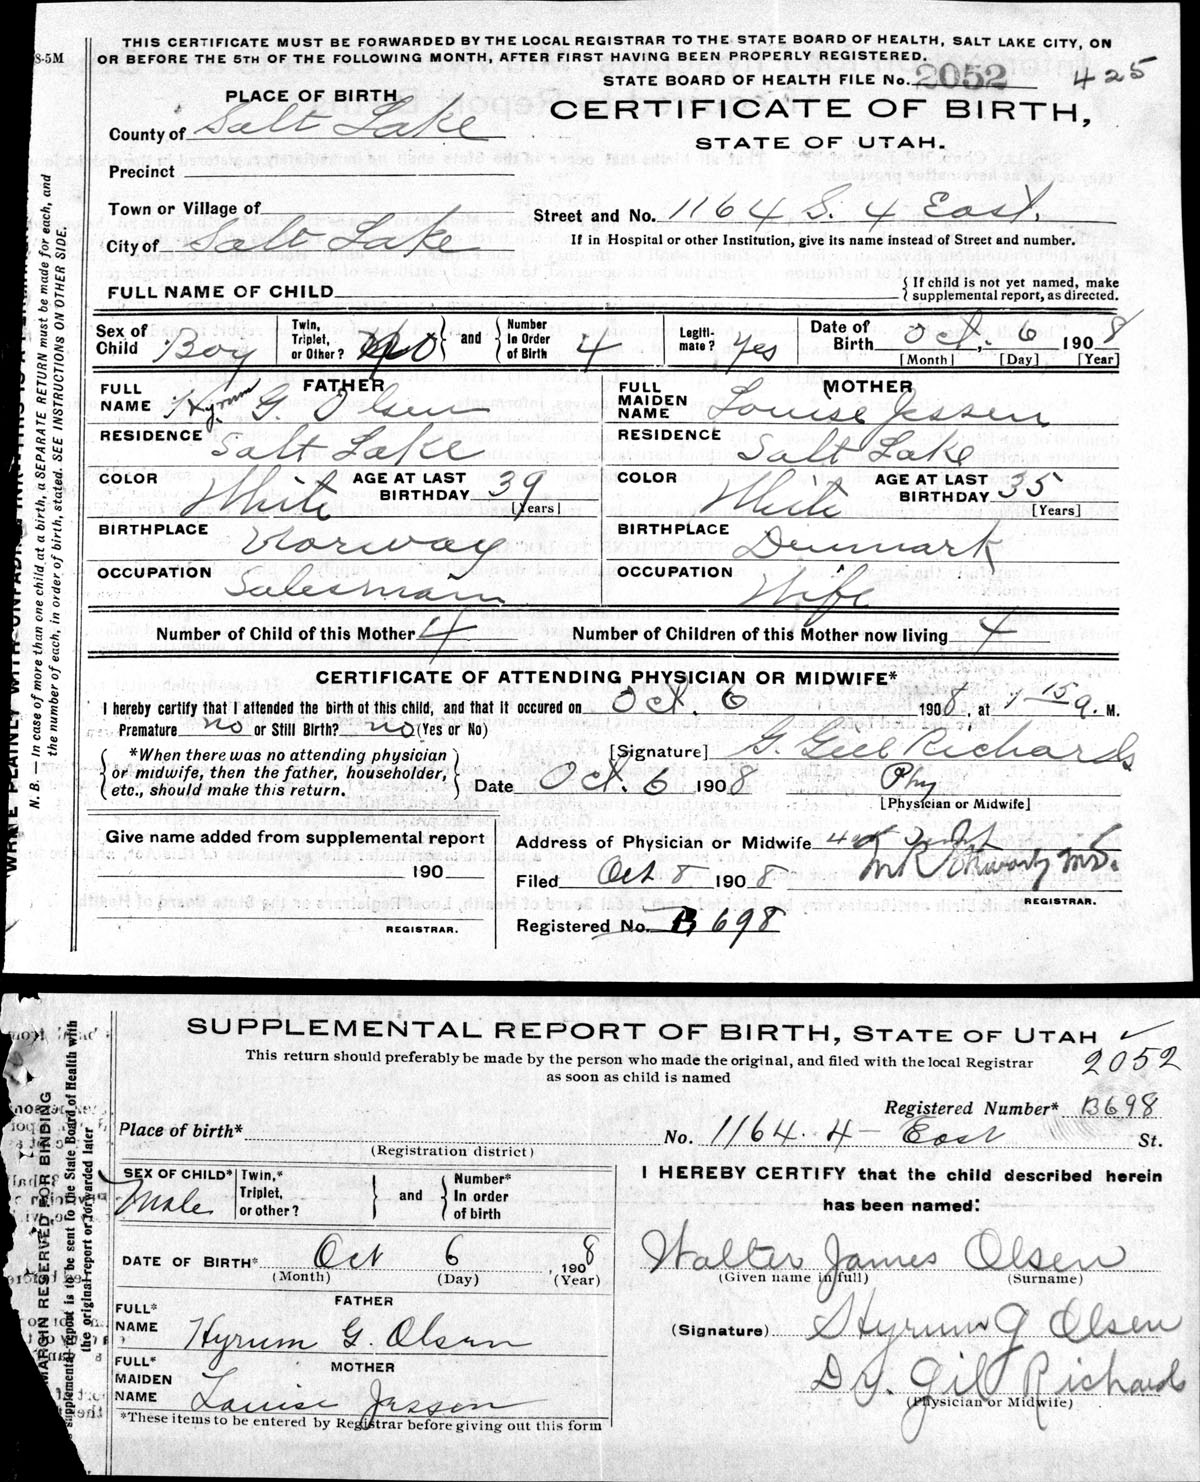 8-5M
THIS CERTIFICATE MUST BE FORWARDED BY THE LOCAL REGISTRAR TO THE STATE BOARD OF HEALTH, SALT LAKE CITY, ON
OR BEFORE THE 5TH OF THE FOLLOWING MONTH, AFTER FIRST HAVING BEEN PROPERLY REGISTERED.
STATE BOARD OF HEALTH FILE No. 2052 425
PLACE OF BIRTH
CERTIFICATE OF BIRTH,
STATE OF UTAH.
County of Salt Lake
Precinct
Town or Village of
Street and No. 1164 S. 4 East.
City of Salt Lake
If in Hospital or other Institution, give its name instead of Street and number.
FULL NAME OF CHILD
{ If child is not yet named, make
supplemental report, as directed.
Sex of Child Boy
Twin, Triplet, or Other? No } and { Number In Order of Birth 4
Legiti-mate? yes
Date of Birth Oct. 6 1908
[Month] [Day] [Year]
FATHER
FULL NAME Hyrum G. Olsen
MOTHER
FULL MAIDEN NAME Louise Jessen
RESIDENCE Salt Lake
RESIDENCE Salt Lake
COLOR White AGE AT LAST BIRTHDAY 39 [Years]
COLOR White AGE AT LAST BIRTHDAY 35 [Years]
BIRTHPLACE Norway
BIRTHPLACE Denmark
OCCUPATION Salesman
OCCUPATION Wife
Number of Child of this Mother 4 Number of Children of this Mother now living 4
CERTIFICATE OF ATTENDING PHYSICIAN OR MIDWIFE*
I hereby certify that I attended the birth of this child, and that it occured on Oct. 6 1908, at 1 15 a. M.
Premature no or Still Birth? no (Yes or No)
*When there was no attending physician
or midwife, then the father, householder,
etc., should make this return.
[Signature] G. Gill Richards
Date Oct. 6 1908 Phy
[Physician or Midwife]
Give name added from supplemental report
190
REGISTRAR.
Address of Physician or Midwife
Filed Oct 8 1908
REGISTRAR.
Registered No. B 698
N. B. — In case of more than one child at a birth, a SEPARATE RETURN must be made for each, and
the number of each, in order of birth, stated. SEE INSTRUCTIONS ON OTHER SIDE.
SUPPLEMENTAL REPORT OF BIRTH, STATE OF UTAH
This return should preferably be made by the person who made the original, and filed with the local Registrar
as soon as child is named
2052
Registered Number* B698
Place of birth* No. 1164. 4 – East St.
(Registration district)
SEX OF CHILD* Male
Twin,* Triplet, or other? } and { Number* In order of birth
I HEREBY CERTIFY that the child described herein
has been named:
DATE OF BIRTH* Oct 6, 1908
(Month) (Day) (Year)
Walter James Olsen
(Given name in full) (Surname)
FATHER
FULL* NAME Hyrum G. Olsen
(Signature) Hyrum G Olsen
MOTHER
FULL* MAIDEN NAME Louise Jesson
Dr. Gil Richards
(Physician or Midwife)
*These items to be entered by Registrar before giving out this form
MARGIN RESERVED FOR BINDING
supplemental report is to be sent to the State Board of Health with
the original report or forwarded later